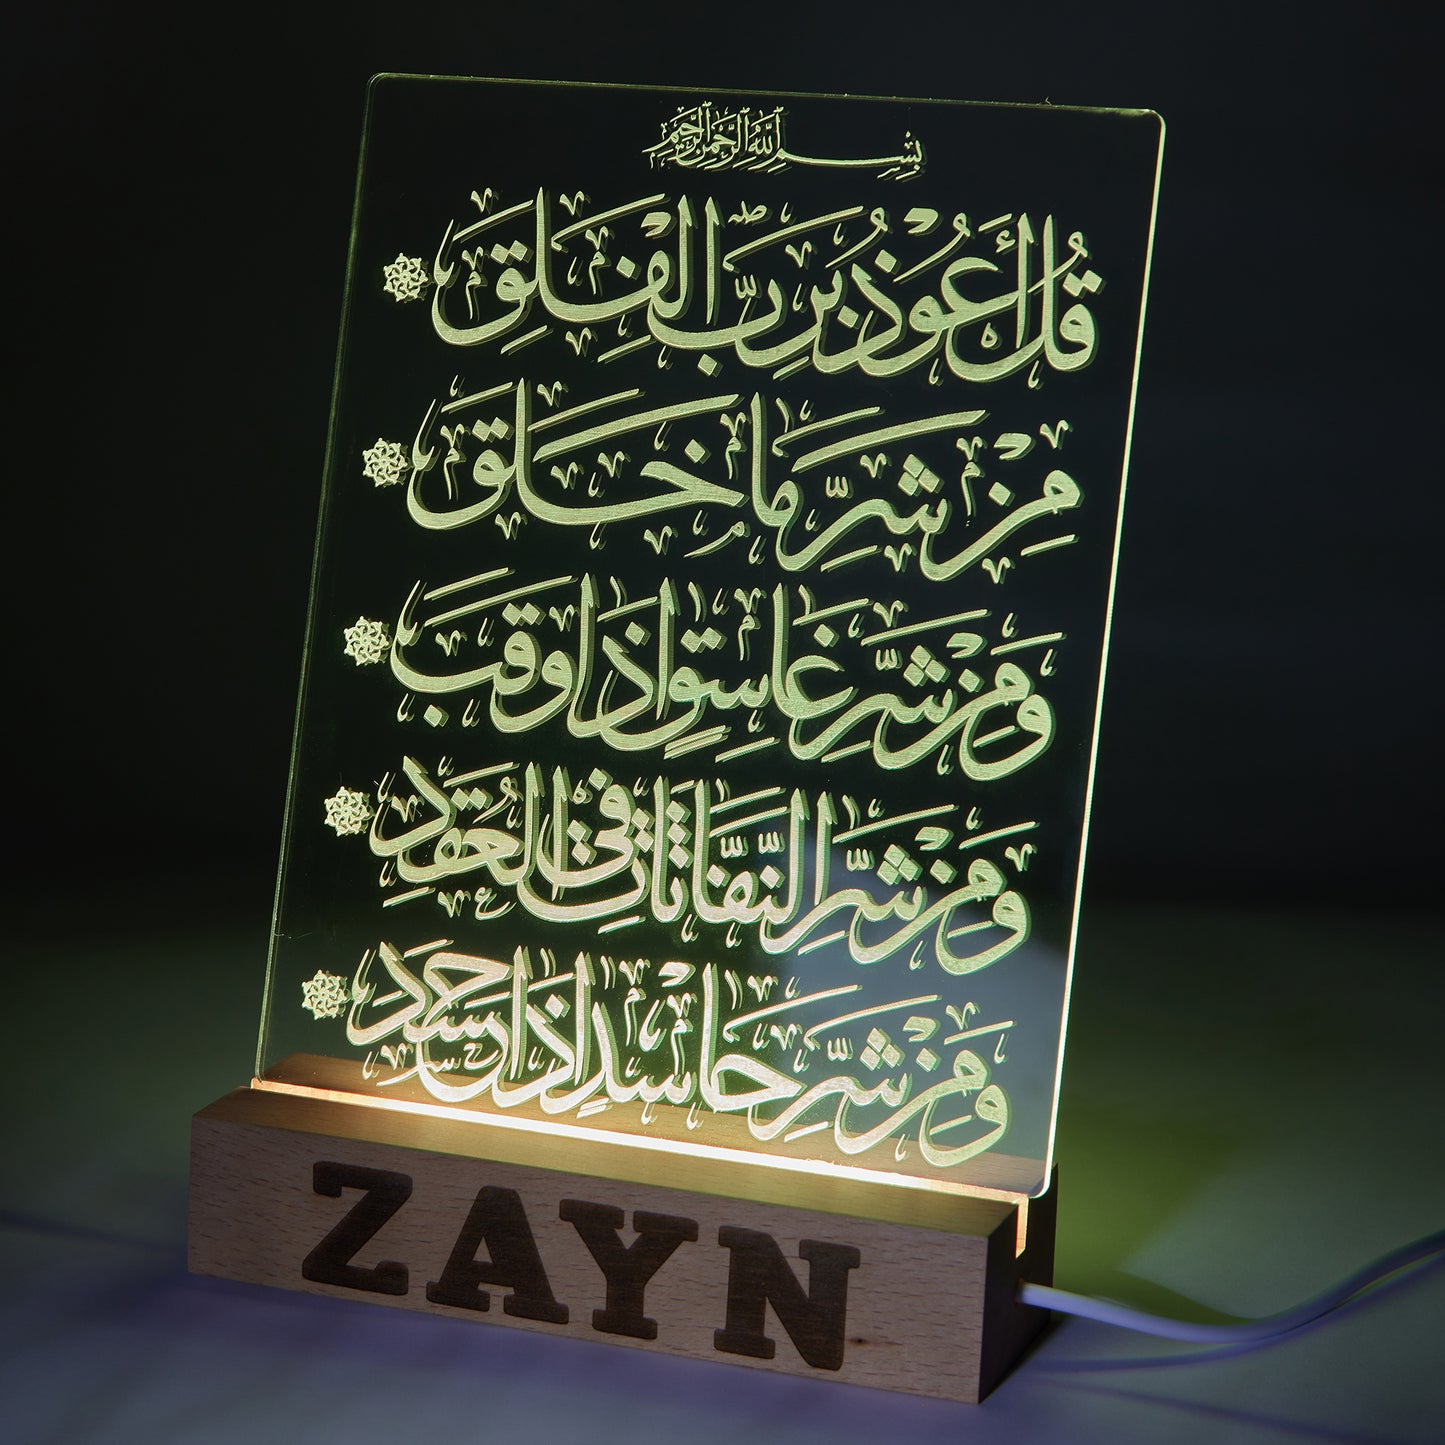 بِسْمِ ٱللَّهِ ٱلرَّحْمَٰنِ ٱلرَّحِيمِ
قُلْ أَعُوْذُ بِرَبِّ الْفَلَقِ
مِنْ شَرِّ مَا خَلَقَ
وَمِنْ شَرِّ غَاسِقٍ إِذَا وَقَبَ
وَمِنْ شَرِّ النَّفَّاثَاتِ فِي الْعُقَدِ
وَمِنْ شَرِّ حَاسِدٍ إِذَا حَسَدَ
ZAYN